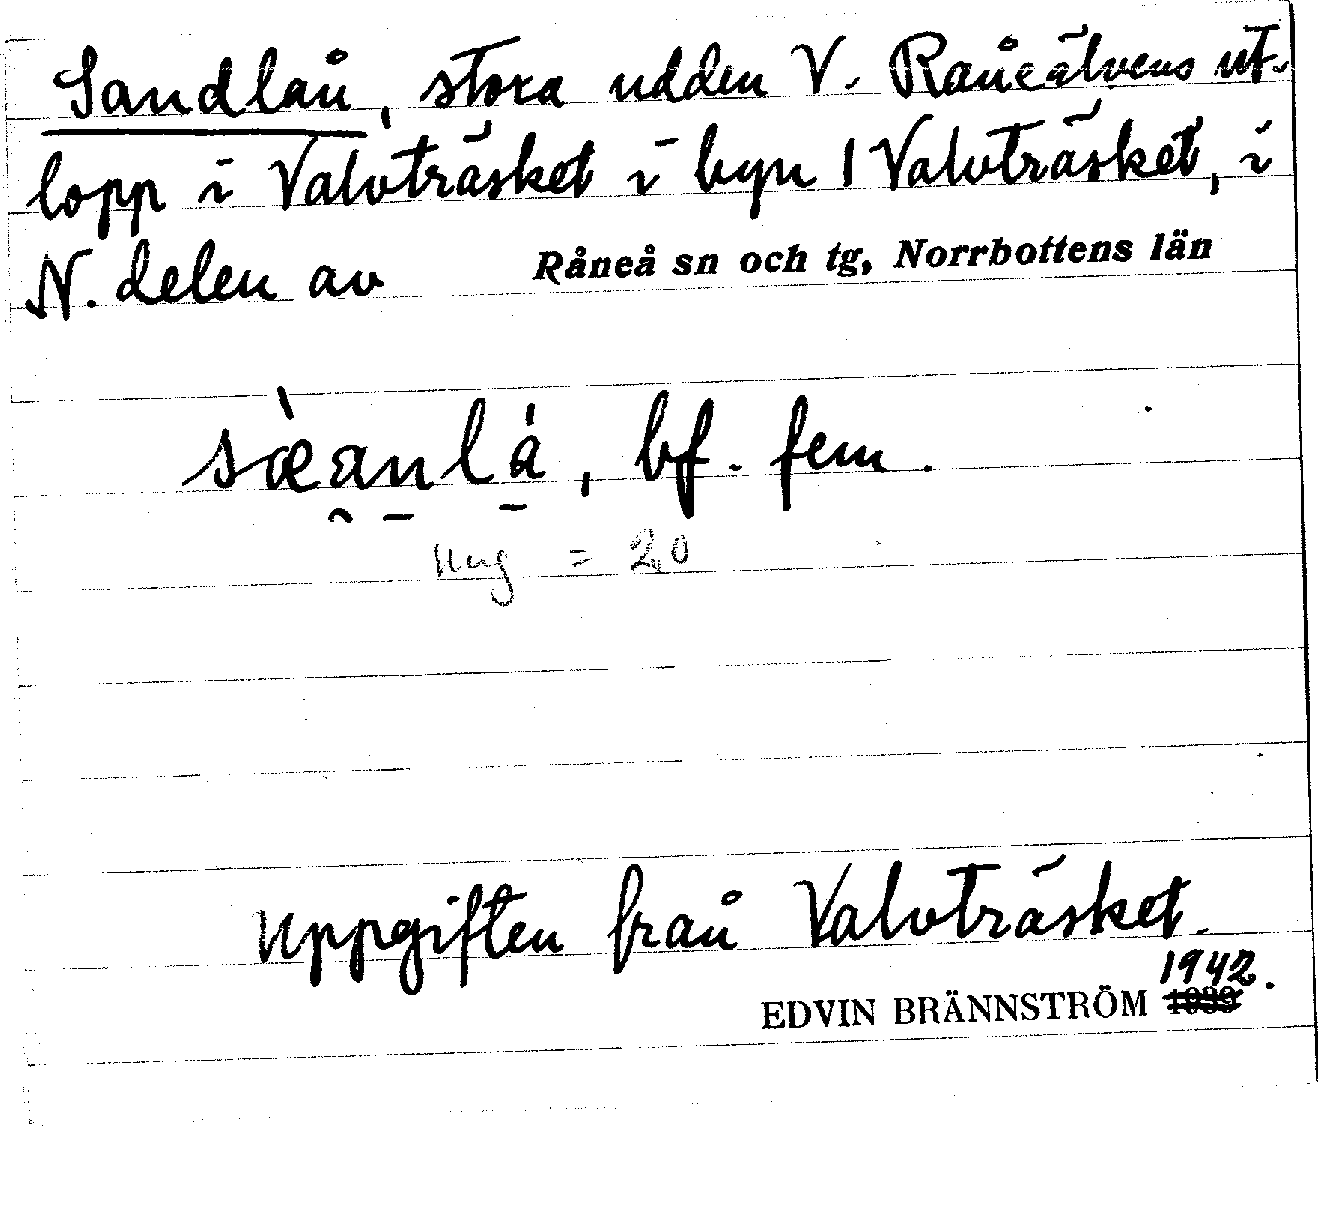 Sandlån, stora udden V. Råneälvens ut-
lopp i Valvträsket i byn 1 Valvträsket, i
N. delen av Råneå sn och tg, Norrbottens län
sæ̀an̠lå̠, bf. fem.
= 20
Uppgiften från Valvträsket.
1942.
EDVIN BRÄNNSTRÖM 1939